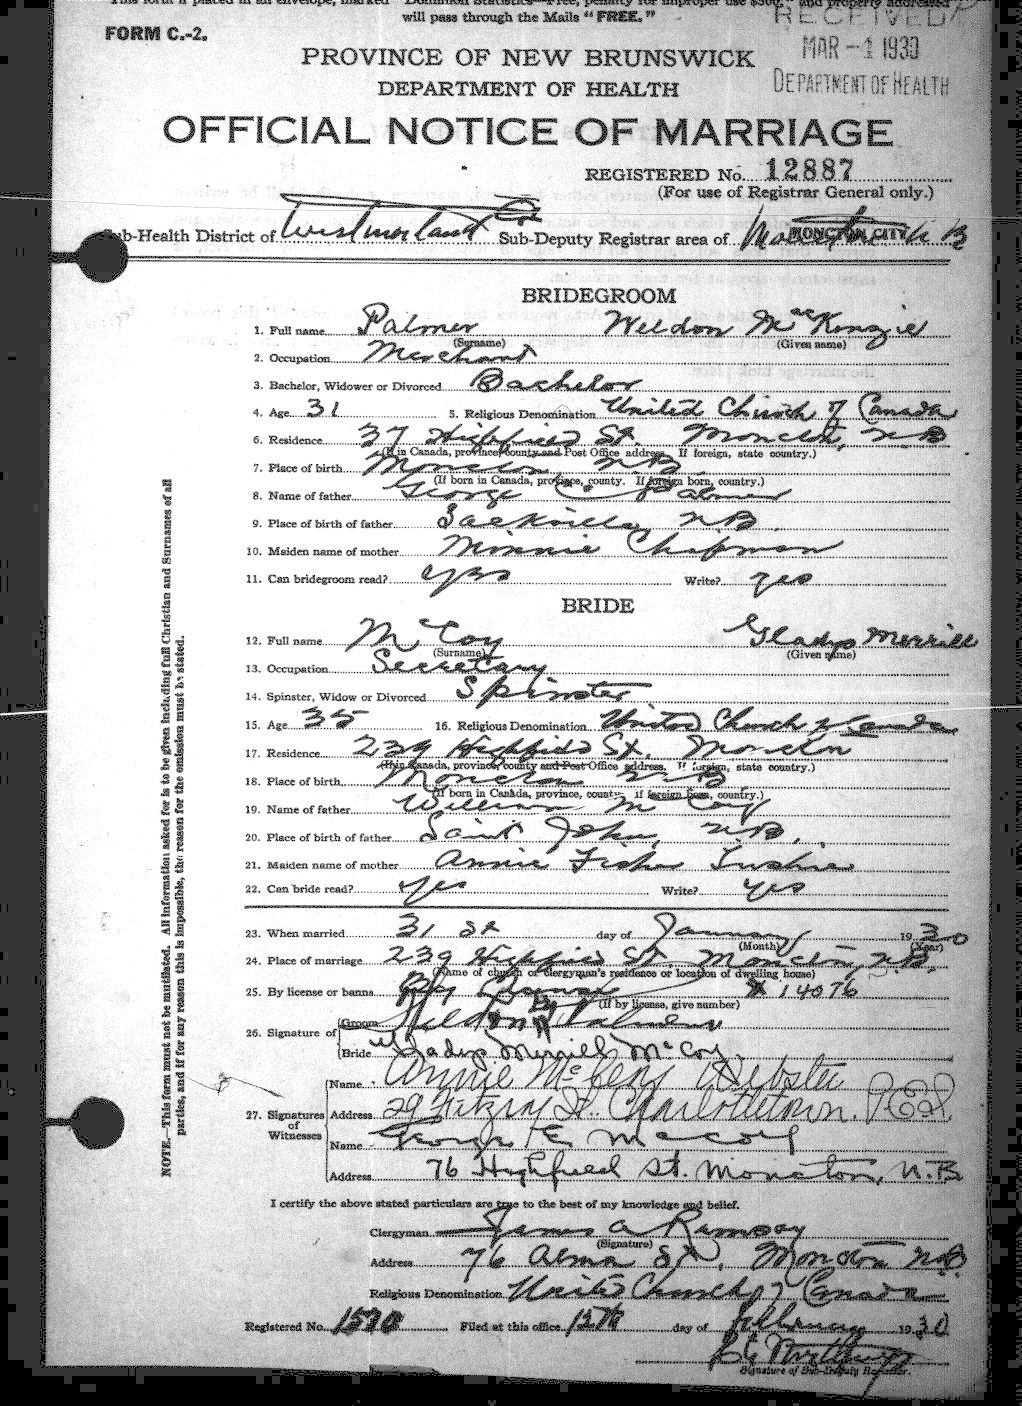 will pass through the Mails "FREE."
RECEIVED
FORM C.-2.
MAR -1 1930
PROVINCE OF NEW BRUNSWICK
DEPARTMENT OF HEALTH
DEPARTMENT OF HEALTH
OFFICIAL NOTICE OF MARRIAGE
REGISTERED No. 12887
(For use of Registrar General only.)
Sub-Health District of Westmorland Sub-Deputy Registrar area of Moncton N B MONCTON CITY
BRIDEGROOM
1. Full name Palmer Weldon MacKenzie
(Surname) (Given name)
2. Occupation Merchant
3. Bachelor, Widower or Divorced Bachelor
4. Age 31 5. Religious Denomination United Church of Canada
6. Residence 37 Highfield St Moncton, N B
(If in Canada, province, county and Post Office address. If foreign, state country.)
7. Place of birth Moncton N B
(If born in Canada, province, county. If foreign born, country.)
8. Name of father George C. Palmer
9. Place of birth of father Sackville N B
10. Maiden name of mother Minnie Chapman
11. Can bridegroom read? yes Write? yes
BRIDE
12. Full name McCoy Gladys Merrill
(Surname) (Given name)
13. Occupation Secretary
14. Spinster, Widow or Divorced Spinster
15. Age 35 16. Religious Denomination United Church of Canada
17. Residence 239 Highfield St. Moncton
(If in Canada, province, county and Post Office address. If foreign, state country.)
18. Place of birth Moncton N B
(If born in Canada, province, county. If foreign born, country.)
19. Name of father William McCoy
20. Place of birth of father Saint John, N B.
21. Maiden name of mother Annie Fisher
22. Can bride read? yes Write? yes
23. When married 31 st day of January 1930
(Month) (Year)
24. Place of marriage 239 Highfield St. Moncton, N.B.
(Name of church or clergyman's residence or location of dwelling house)
25. By license or banns By License # 14076
(If by license, give number)
26. Signature of Groom Weldon M Palmer
Bride Gladys Merrill McCoy
27. Signatures of Witnesses Name Annie McCoy Webster
Address 29 Fitzroy St. Charlottetown. P.E.I.
Name George E. McCoy
Address 76 Highfield St. Moncton, N.B.
I certify the above stated particulars are true to the best of my knowledge and belief.
Clergyman James A Ramsay
(Signature)
Address 76 Alma St, Moncton N.B.
Religious Denomination United Church of Canada
Registered No. 1530 Filed at this office 12th day of February 1930
Signature of Sub-Deputy Registrar.
NOTE.—This form must not be mutilated. All information asked for is to be given including full Christian and Surnames of all
parties, and if for any reason this is impossible, the reason for the omission must be stated.